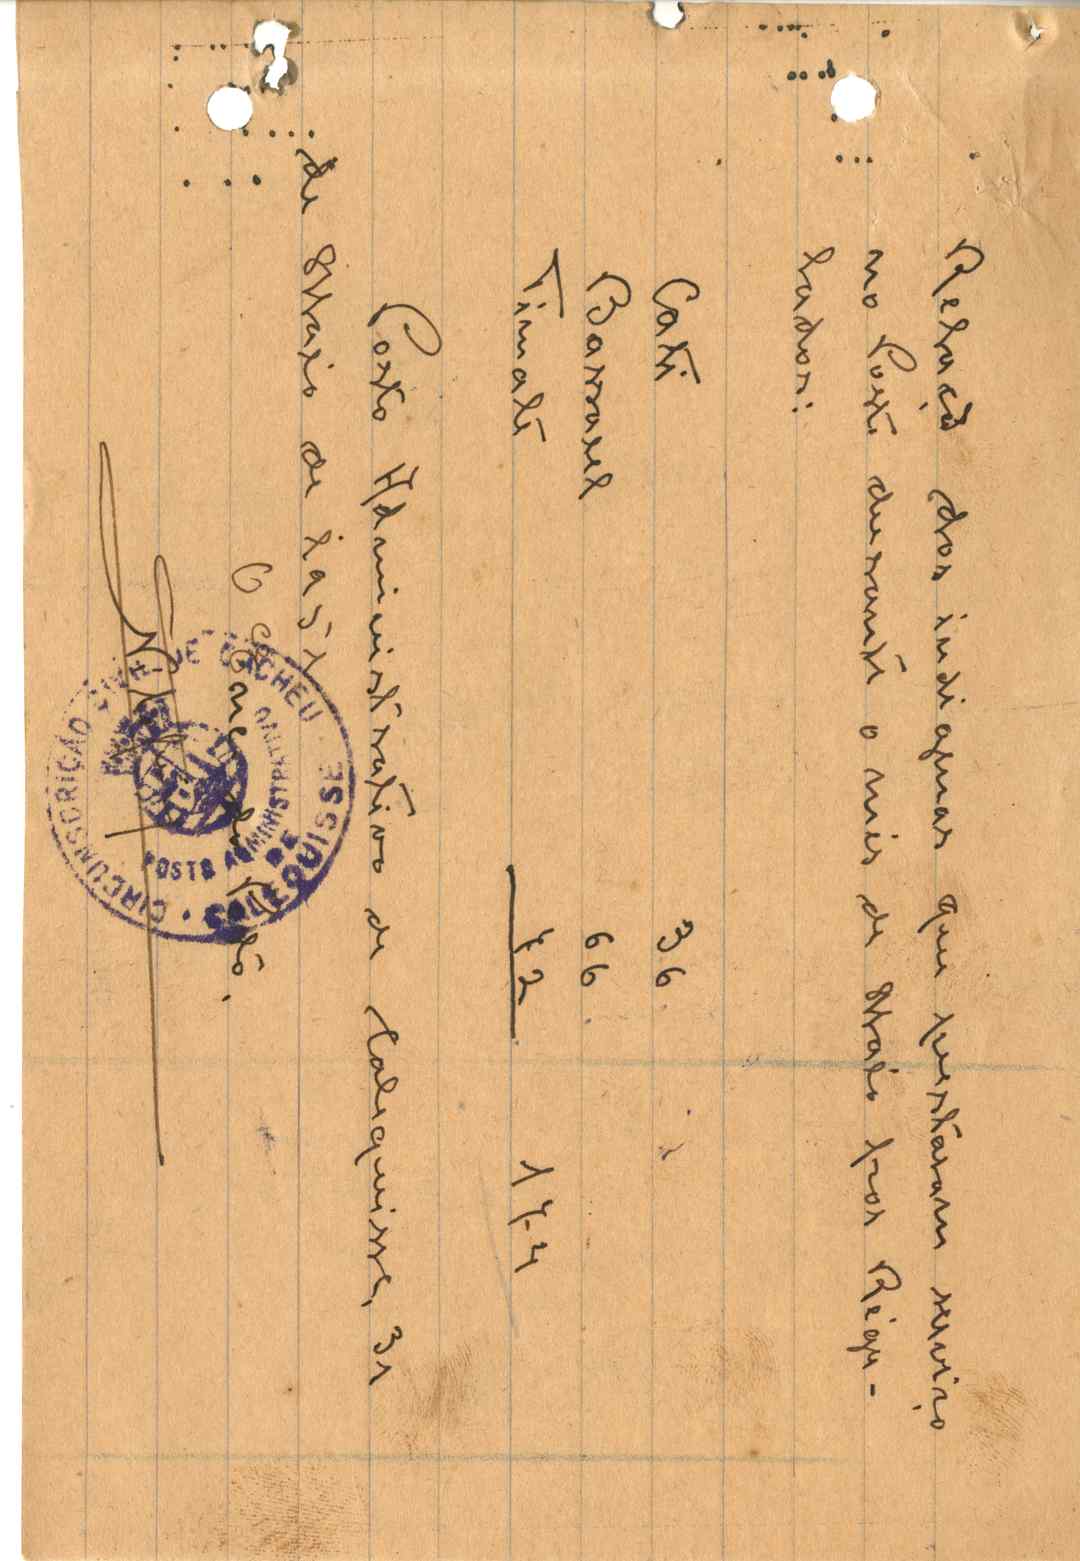 Relação dos indiginas que prestaram serviço
no Posto durante o mês de Maio por Régu-
lados:
Cati 36
Bassarel 66
Timate 72 174
Posto Administrativo de Caliquisse, 31
de Maio de 1951
O
CIRCUNSCRIÇÃO CIVIL DE CACHEU
POSTO ADMINISTRATIVO
DE
CALEQUISSE